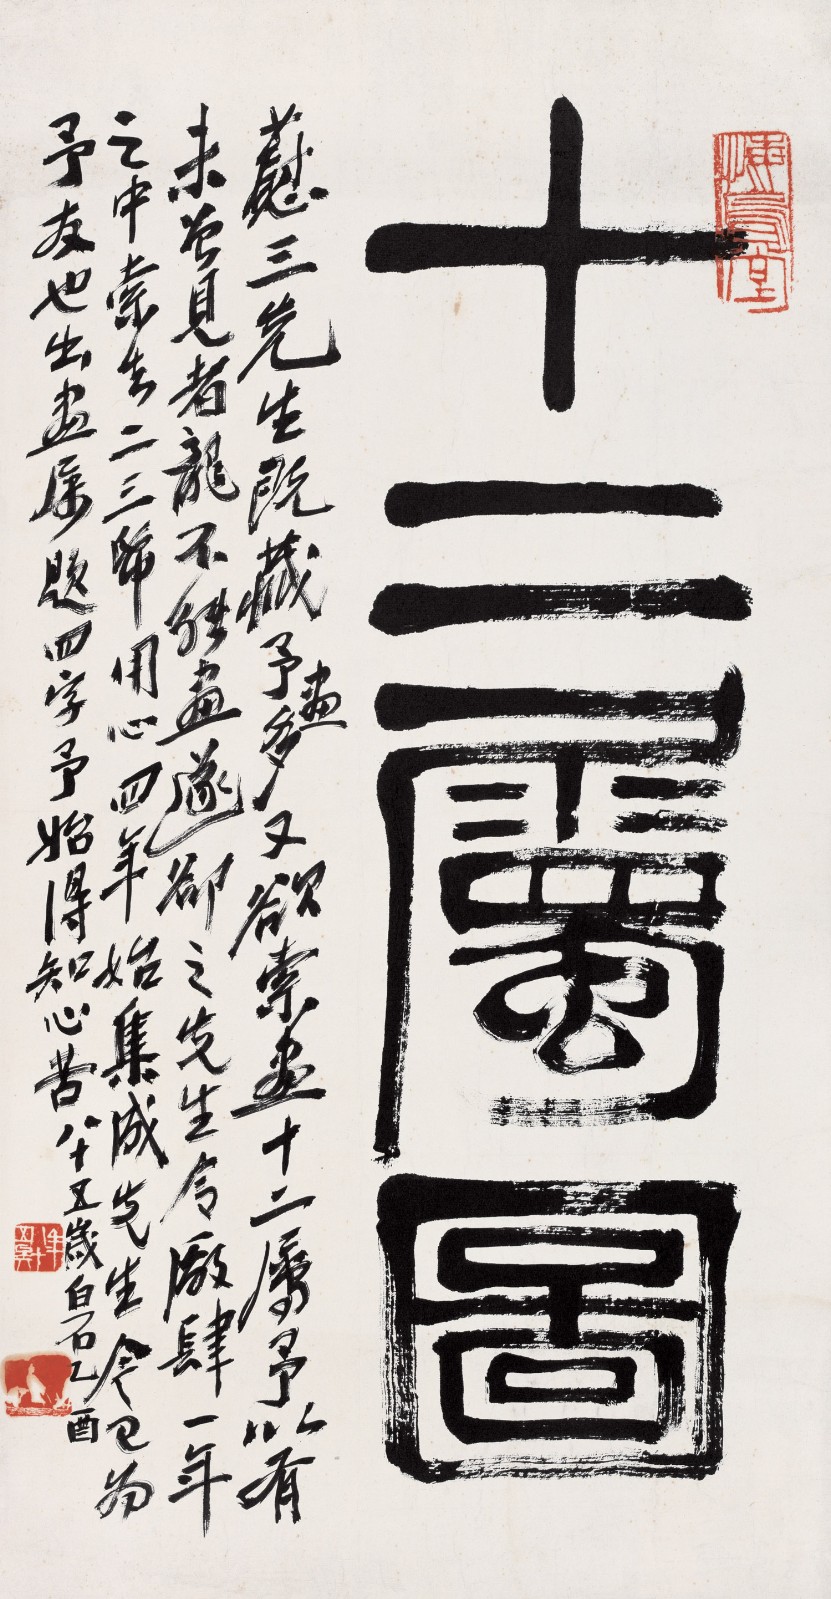 悔烏堂
十二屬圖
三先生既藏予畫多又欲索畫十二屬予以有
未曾見者龍不能畫遂卻之先生令厰肆一年
之中索去二三幀用心四年始集成先生今已為
予友也出畫属題四字予始得知心苦八十五歲白石乙酉